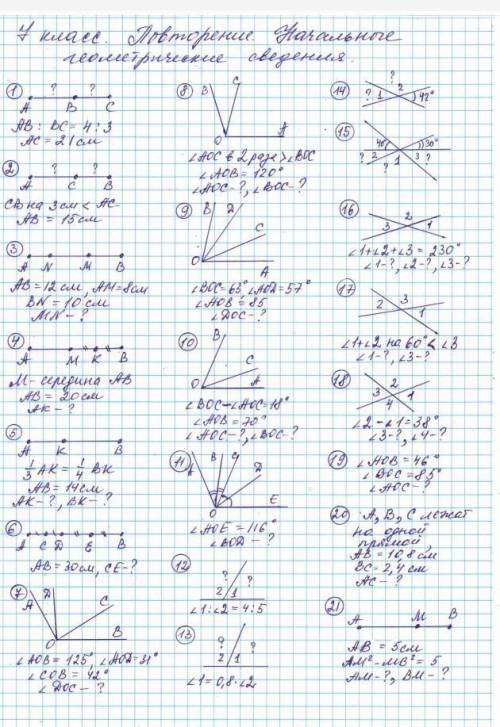 7 класс. Повторение. Начальные
геометрические сведения.
1
? ?
A B C
AB : BC = 4 : 3
AC = 21 см
2
? ?
A C B
CB на 3 см < AC
AB = 15 см
3
A N M B
AB = 12 см, AM = 8 см
BN = 10 см
MN - ?
4
A M K B
M - середина AB
AB = 20 см
AK - ?
5
A K B
1/3 AK = 1/4 BK
AB = 14 см
AK - ?, BK - ?
6
A C D E B
AB = 30 см, CE - ?
7
A D C
O B
∠AOB = 125°, ∠AOD = 31°
∠COB = 42°
∠DOC - ?
8
B C
O A
∠AOC в 2 раза > ∠BOC
∠AOB = 120°
∠AOC - ?, ∠BOC - ?
9
B D
C
O A
∠BOC = 63° ∠AOD = 57°
∠AOB = 85
∠DOC - ?
10
B
C
O A
∠BOC - ∠AOC = 18°
∠AOB = 70°
∠AOC - ?, ∠BOC - ?
11
A B C D
O E
∠AOE = 116°
∠BOD - ?
12
? ?
2 1
∠1 : ∠2 = 4 : 5
13
? ?
2 1
∠1 = 0,8 · ∠2
14
?
? 1 2 42°
15
40° 30°
? 2 1 3 ?
?
16
2
3 1
∠1 + ∠2 + ∠3 = 230°
∠1 - ?, ∠2 - ?, ∠3 - ?
17
2 3
1
∠1 + ∠2 на 60° < ∠3
∠1 - ?, ∠3 - ?
18
2
3 1
4
∠2 - ∠1 = 38°
∠3 - ?, ∠4 - ?
19
∠AOB = 46°
∠BOC = 85°
∠AOC - ?
20
A, B, C лежат
на одной
прямой,
AB = 10,8 см
BC = 2,4 см
AC - ?
21
A M B
AB = 5 см
AM² - MB² = 5
AM - ?, BM - ?